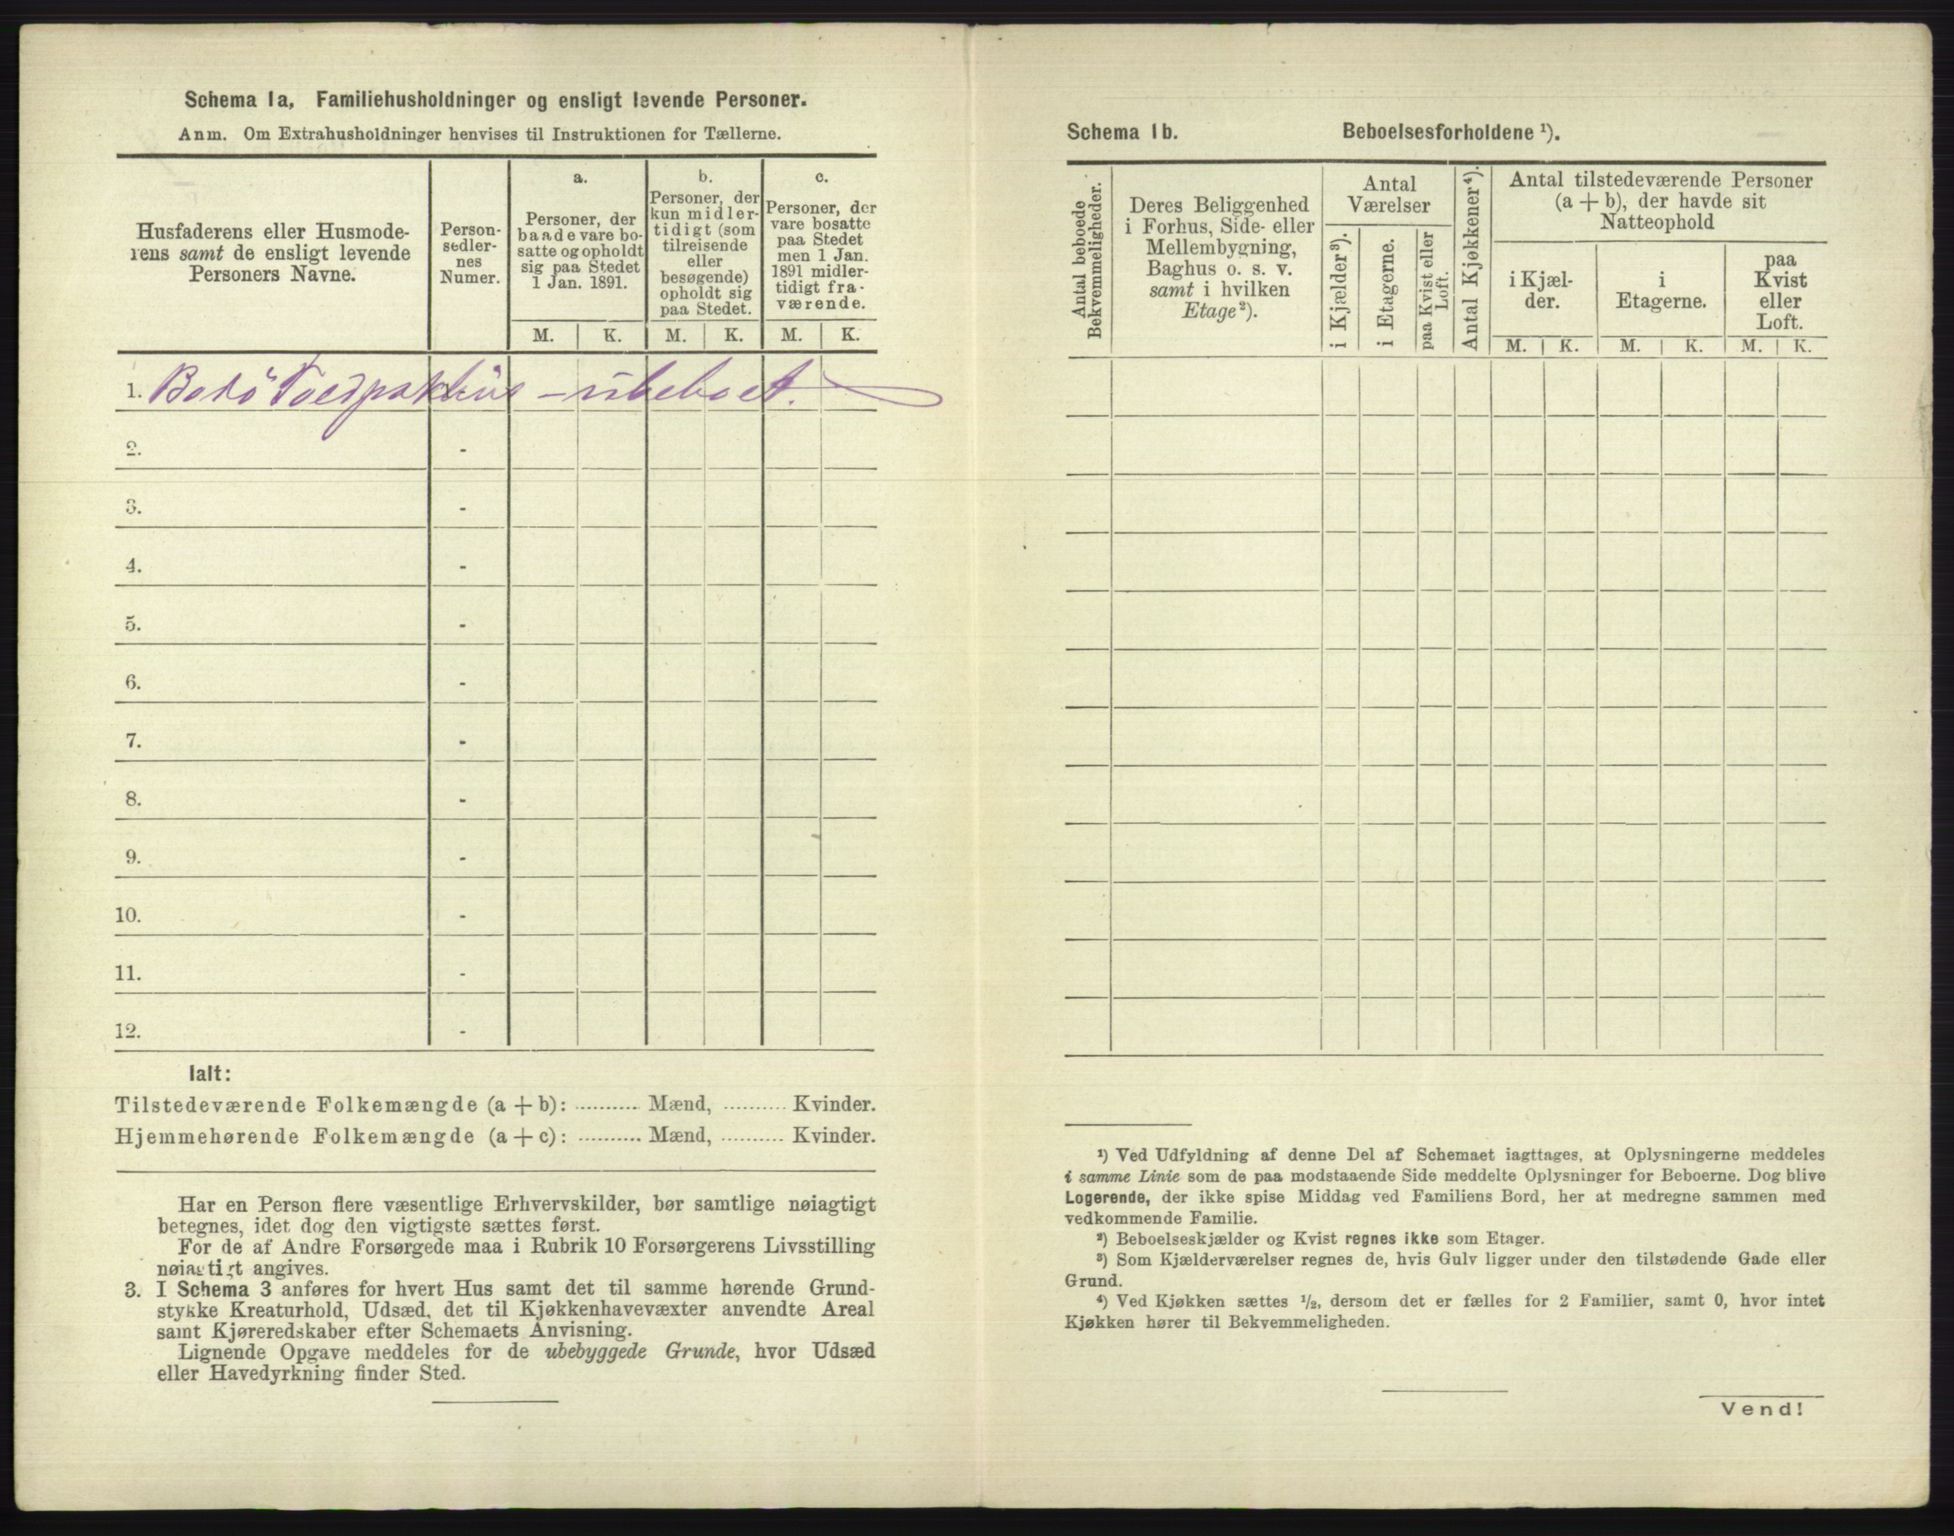 Schema 1a, Familiehusholdninger og ensligt levende Personer.
Anm. Om Extrahusholdninger henvises til Instruktionen for Tællerne.
Husfaderens eller Husmode-
rens samt de ensligt levende
Personers Navne.
Person-
sedler-
nes
Numer.
a.
Personer, der
baade vare bo-
satte og opholdt
sig paa Stedet
1 Jan. 1891.
b.
Personer, der
kun midler-
tidigt (som
tilreisende
eller
besøgende)
opholdt sig
paa Stedet.
c.
Personer, der
vare bosatte
paa Stedet
men 1 Jan.
1891 midler-
tidigt fra-
værende.
M. K. M. K. M. K.
1. Bodö ubeboet.
2. -
3. -
4. -
5. -
6. -
7. -
8. -
9. -
10. -
11. -
12. -
Ialt:
Tilstedeværende Folkemængde (a + b): ........... Mænd, ........... Kvinder.
Hjemmehørende Folkemængde (a + c): ........... Mænd, ........... Kvinder.
Har en Person flere væsentlige Erhvervskilder, bør samtlige nøiagtigt
betegnes, idet dog den vigtigste sættes først.
For de af Andre Forsørgede maa i Rubrik 10 Forsørgerens Livsstilling
nøiagtigt angives.
3. I Schema 3 anføres for hvert Hus samt det til samme hørende Grund-
stykke Kreaturhold, Udsæd, det til Kjøkkenhavevæxter anvendte Areal
samt Kjøreredskaber efter Schemaets Anvisning.
Lignende Opgave meddeles for de ubebyggede Grunde, hvor Udsæd
eller Havedyrkning finder Sted.
Schema 1b. Beboelsesforholdene ¹).
Antal beboede
Bekvemmeligheder.
Deres Beliggenhed
i Forhus, Side- eller
Mellembygning,
Baghus o. s. v.
samt i hvilken
Etage²).
Antal
Værelser
i Kjælder³).
i Etagerne.
paa Kvist eller
Loft.
Antal Kjøkkener⁴).
Antal tilstedeværende Personer
(a + b), der havde sit
Natteophold
i Kjæl-
der.
i
Etagerne.
paa
Kvist
eller
Loft.
M. K. M. K. M. K.
¹) Ved Udfyldning af denne Del af Schemaet iagttages, at Oplysningerne meddeles
i samme Linie som de paa modstaaende Side meddelte Oplysninger for Beboerne. Dog blive
Logerende, der ikke spise Middag ved Familiens Bord, her at medregne sammen med
vedkommende Familie.
²) Beboelseskjælder og Kvist regnes ikke som Etager.
³) Som Kjælderværelser regnes de, hvis Gulv ligger under den tilstødende Gade eller
Grund.
⁴) Ved Kjøkken sættes ½, dersom det er fælles for 2 Familier, samt 0, hvor intet
Kjøkken hører til Bekvemmeligheden.
Vend!